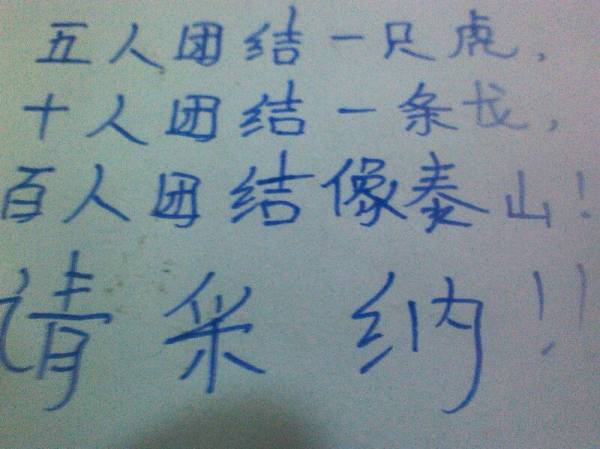 五人团结一只虎，
十人团结一条戈，
百人团结像泰山！
请采纳！！